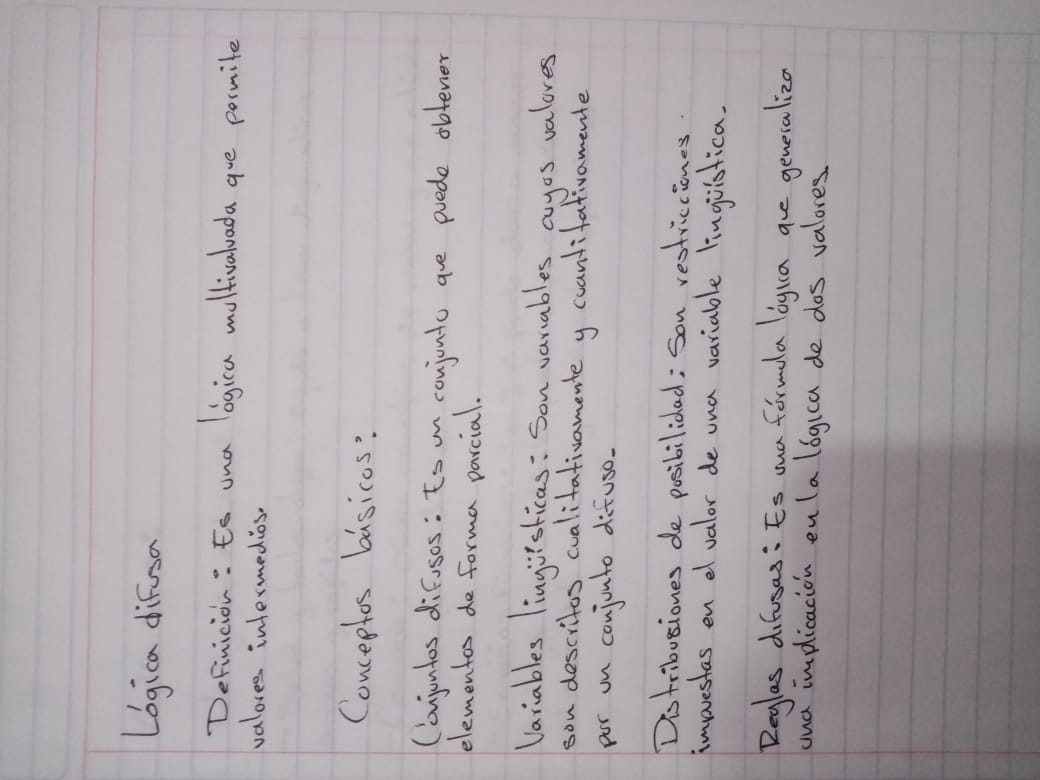 Lógica difusa
Definición: Es una lógica multivaluada que permite
valores intermedios.
Conceptos básicos:
Conjuntos difusos: Es un conjunto que puede obtener
elementos de forma parcial.
Variables lingüísticas: Son variables cuyos valores
son descritos cualitativamente y cuantitativamente
por un conjunto difuso.
Distribuciones de posibilidad: Son restricciones
impuestas en el valor de una variable lingüística.
Reglas difusas: Es una fórmula lógica que generaliza
una implicación en la lógica de dos valores.